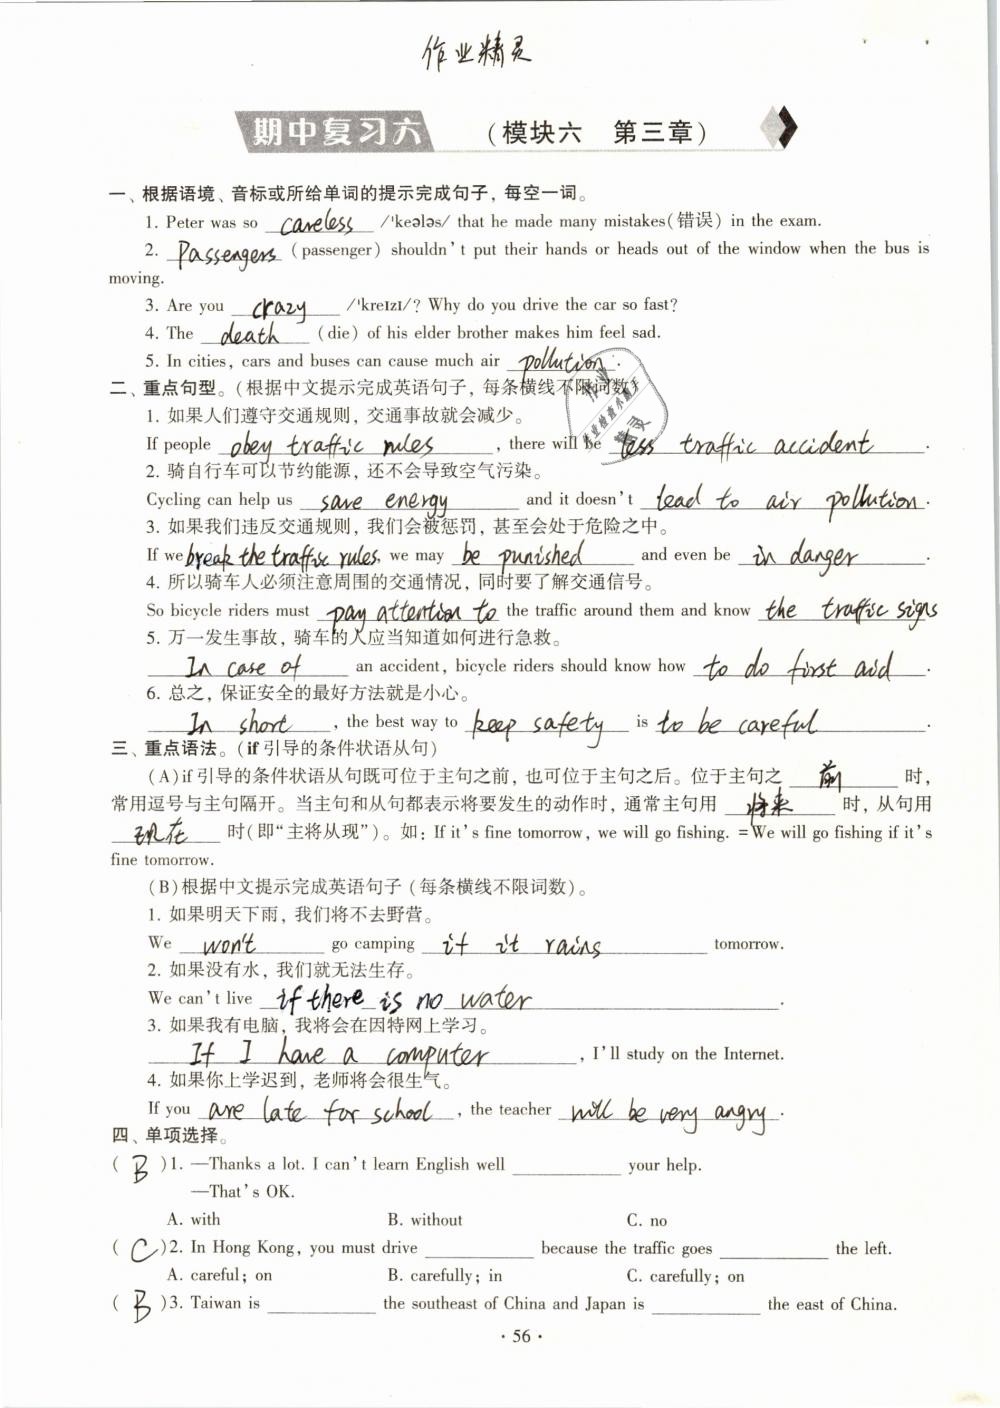 作业精灵
期中复习六 (模块六 第三章)
一、根据语境、音标或所给单词的提示完成句子，每空一词。
1. Peter was so careless /'keələs/ that he made many mistakes(错误) in the exam.
2. Passengers (passenger) shouldn't put their hands or heads out of the window when the bus is
moving.
3. Are you crazy /'kreɪzɪ/? Why do you drive the car so fast?
4. The death (die) of his elder brother makes him feel sad.
5. In cities, cars and buses can cause much air pollution.
二、重点句型。(根据中文提示完成英语句子，每条横线不限词数)
1. 如果人们遵守交通规则，交通事故就会减少。
If people obey traffic rules, there will be less traffic accident.
2. 骑自行车可以节约能源，还不会导致空气污染。
Cycling can help us save energy and it doesn't lead to air pollution.
3. 如果我们违反交通规则，我们会被惩罚，甚至会处于危险之中。
If we break the traffic rules, we may be punished and even be in danger.
4. 所以骑车人必须注意周围的交通情况，同时要了解交通信号。
So bicycle riders must pay attention to the traffic around them and know the traffic signs
5. 万一发生事故，骑车的人应当知道如何进行急救。
In case of an accident, bicycle riders should know how to do first aid.
6. 总之，保证安全的最好方法就是小心。
In short, the best way to keep safety is to be careful.
三、重点语法。(if引导的条件状语从句)
(A)if引导的条件状语从句既可位于主句之前，也可位于主句之后。位于主句之 前 时，
常用逗号与主句隔开。当主句和从句都表示将要发生的动作时，通常主句用 将来 时，从句用
现在 时(即“主将从现”)。如: If it's fine tomorrow, we will go fishing. =We will go fishing if it's
fine tomorrow.
(B)根据中文提示完成英语句子(每条横线不限词数)。
1. 如果明天下雨，我们将不去野营。
We won't go camping if it rains tomorrow.
2. 如果没有水，我们就无法生存。
We can't live if there is no water.
3. 如果我有电脑，我将会在因特网上学习。
If I have a computer, I'll study on the Internet.
4. 如果你上学迟到，老师将会很生气。
If you are late for school, the teacher will be very angry.
四、单项选择。
( B )1. —Thanks a lot. I can't learn English well ________ your help.
—That's OK.
A. with B. without C. no
( C )2. In Hong Kong, you must drive ________ because the traffic goes ________ the left.
A. careful; on B. carefully; in C. carefully; on
( B )3. Taiwan is ________ the southeast of China and Japan is ________ the east of China.
· 56 ·